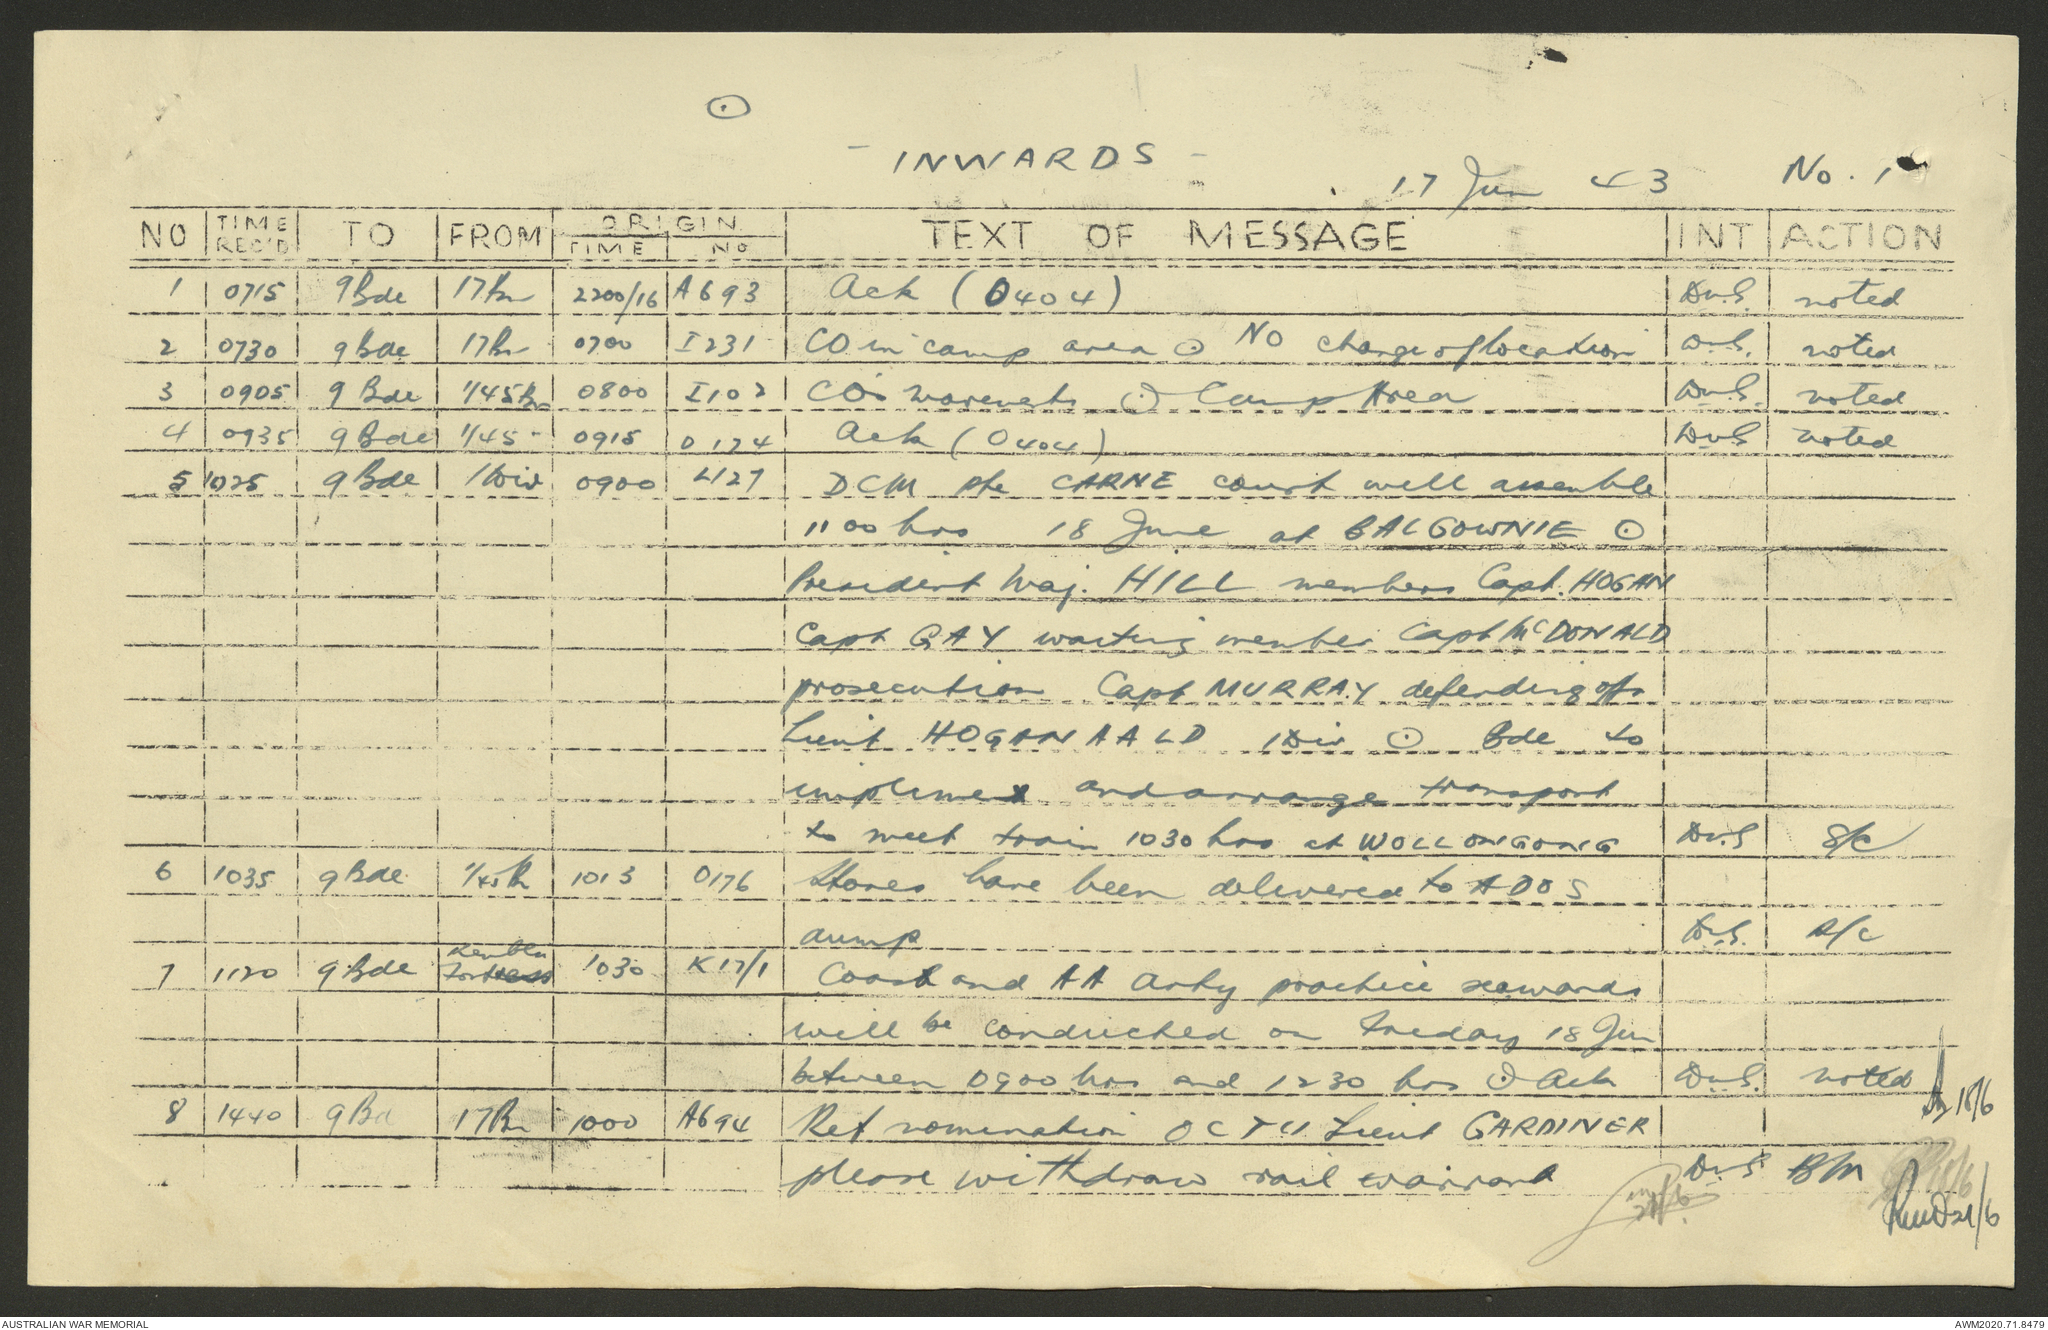 - INWARDS -
17 Jun 43 No. 1
NO TIME REC'D TO FROM ORIGIN TIME NO TEXT OF MESSAGE INT ACTION
1 0715 9 Bde 17 Bn 2200/16 A693 Ack (0404) DvS. noted
2 0730 9 Bde 17 Bn 0700 I231 CO in camp area ⊙ NO change of location DvS. noted
3 0905 9 Bde 1/45 Bn 0800 I102 CO's movements ⊙ Camp Area DvS. noted
4 0935 9 Bde 1/45 " 0915 O174 Ack (0404) DvS. noted
5 1025 9 Bde 1 Div 0900 L127 DCM Pte CARNE court will assemble
1100 hrs 18 June at BALGOWNIE ⊙
President Maj. HILL members Capt. HOGAN
Capt GAY waiting member Capt McDONALD
prosecution Capt MURRAY defending offr
Lieut HOGAN AALD 1 Div ⊙ Bde to
impliment and arrange transport
to meet train 1030 hrs at WOLLONGONG DvS S/C
6 1035 9 Bde 1/45 Bn 1013 O176 Stores have been delivered to ADOS
dump DvS. S/C
7 1120 9 Bde Kembla Fortress 1030 K17/1 Coast and AA Arty practice seawards
will be conducted on Friday 18 Jun
between 0900 hrs and 1230 hrs ⊙ Ack DvS. noted
18/6
8 1440 9 Bd 17 Bn 1000 A694 Ref nomination OCTU Lieut GARDINER
please withdraw rail warrant DvS. BM 18/6
21/6
AUSTRALIAN WAR MEMORIAL AWM2020.71.8479